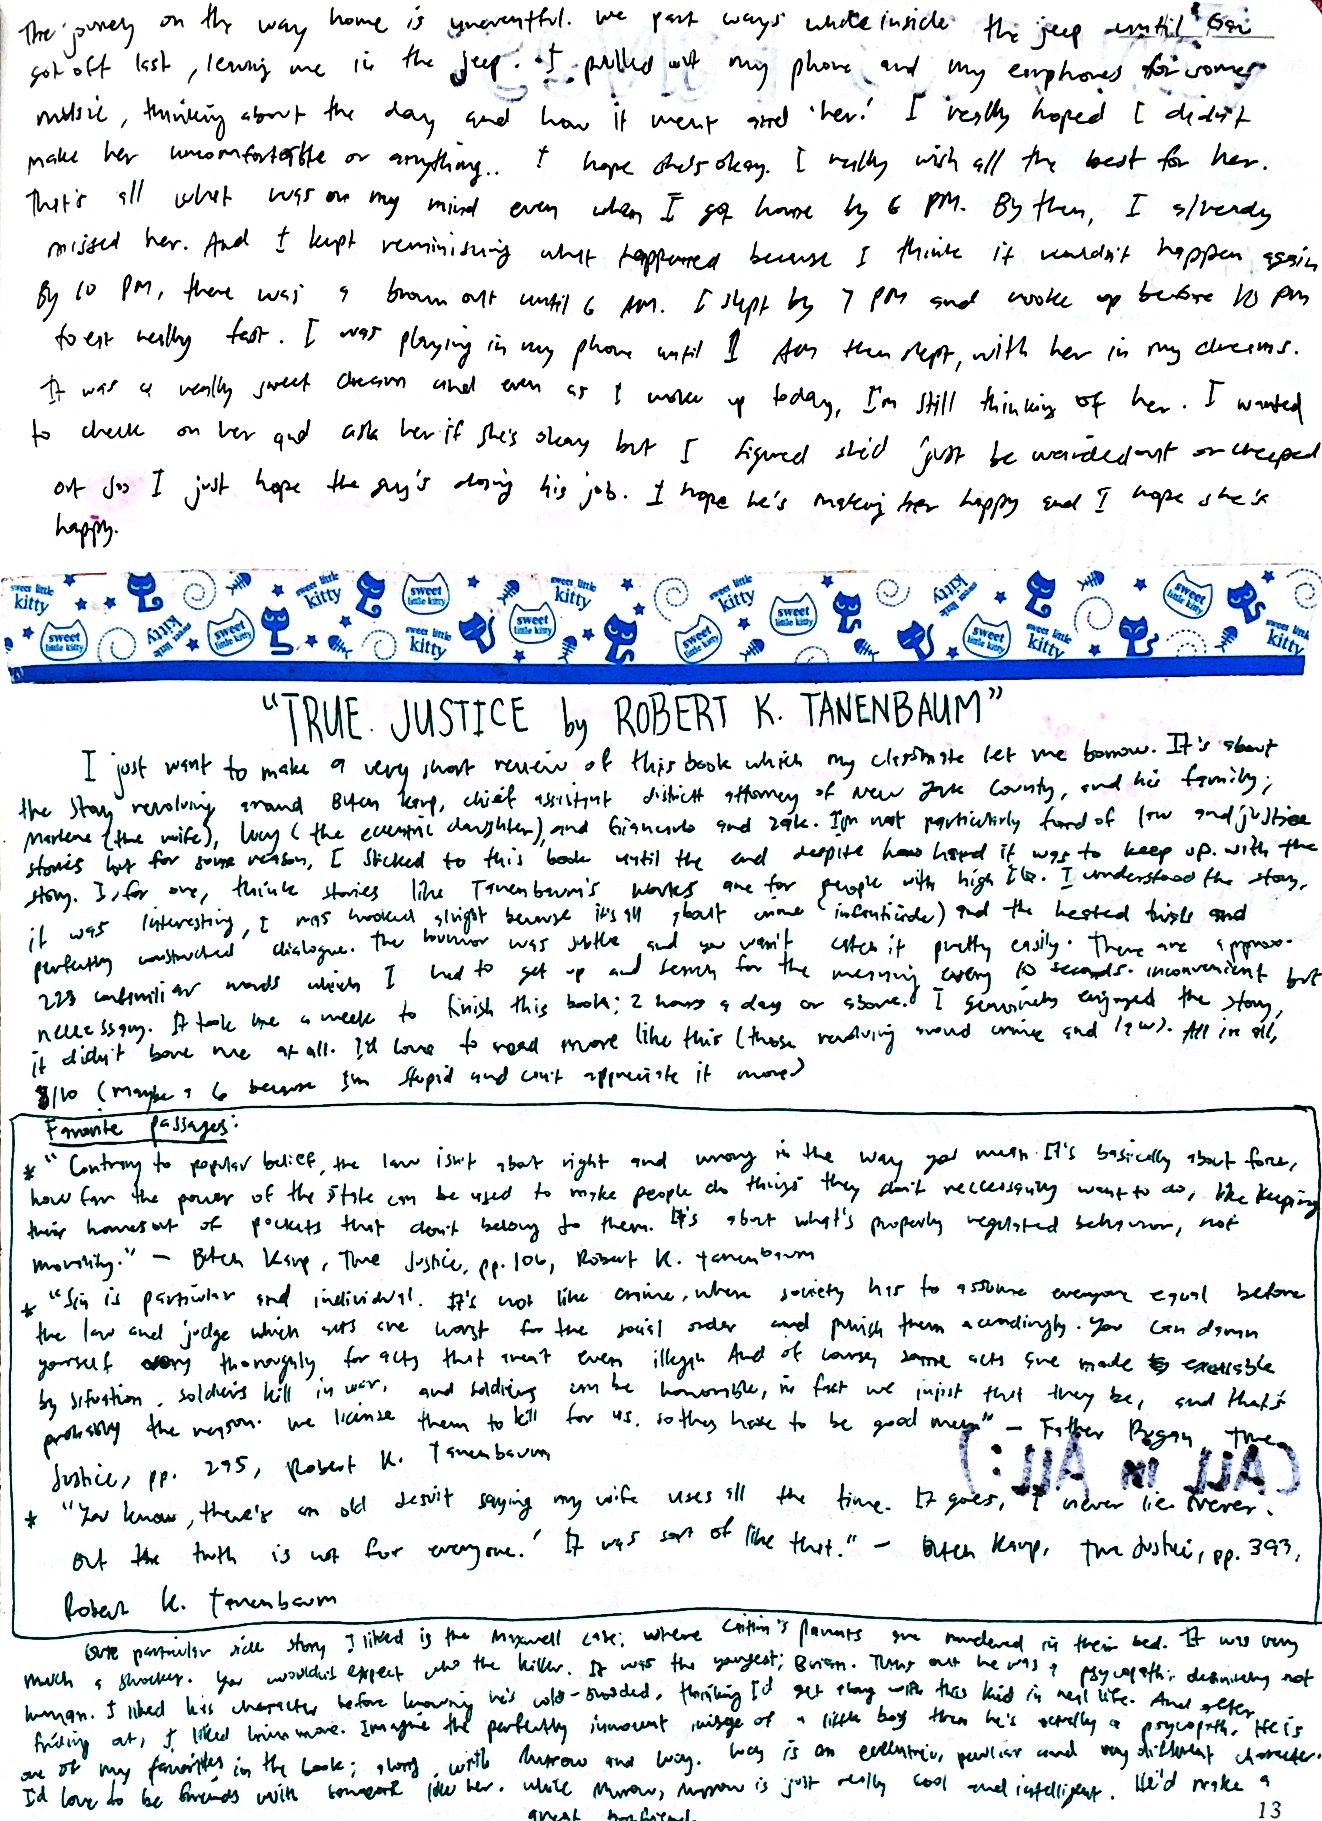 The journey on the way home is uneventful. We part ways while inside the jeep until
got off last, leaving me in the jeep. I pulled out my phone and my earphones for some
music, thinking about the day and how it went and 'her.' I really hoped I didn't
make her uncomfortable or anything.. I hope she's okay. I really wish all the best for her.
That's all what was on my mind even when I got home by 6 PM. By then, I already
missed her. And I kept reminiscing what happened because I think it wouldn't happen again
By 10 PM, there was a brown out until 6 AM. I slept by 7 PM and woke up before 10 PM
to eat really fast. I was playing in my phone until 1 AM then slept, with her in my dreams.
It was a really sweet dream and even as I woke up today, I'm still thinking of her. I wanted
to check on her and ask her if she's okay but I figured she'd just be weirded out or creeped
out so I just hope the guy's doing his job. I hope he's making her happy and I hope she's
happy.
sweet little kitty
"TRUE JUSTICE by ROBERT K. TANENBAUM"
I just want to make a very short review of this book which my classmate let me borrow. It's about
the story revolving around Butch Karp, chief assistant district attorney of New York County, and his family;
Marlene (the wife), Lucy (the eccentric daughter), and Giancarlo and Zak. I'm not particularly fond of law and justice
stories but for some reason, I sticked to this book until the end despite how hard it was to keep up with the
story. I, for one, think stories like Tanenbaum's works are for people with high IQ. I understood the story,
it was interesting, I was hooked alright because it's all about crime (infanticide) and the heated trials and
perfectly constructed dialogue. The humor was subtle and you won't catch it pretty easily. There are approx.
223 unfamiliar words which I had to get up and search for the meaning every 10 seconds. inconvenient but
necessary. It took me a week to finish this book; 2 hours a day or above. I genuinely enjoyed the story,
it didn't bore me at all. I'd love to read more like this (those revolving around crime and law). All in all,
8/10 (maybe a 6 because I'm stupid and can't appreciate it more)
Favorite passages:
* "Contrary to popular belief, the law isn't about right and wrong in the way you mean. It's basically about force,
how far the power of the state can be used to make people do things they don't neccessarily want to do, like keeping
their homes out of pockets that don't belong to them. It's about what's properly regulated behavior, not
morality." – Butch Karp, True Justice, pp. 106, Robert K. Tanenbaum
* "Sin is particular and individual. It's not like crime, where society has to assume everyone equal before
the law and judge which acts are worst for the social order and punish them accordingly. You can damn
yourself very thoroughly for acts that aren't even illegal. And of course, some acts are made excusable
by situation. Soldiers kill in war, and soldiers can be honorable, in fact we insist that they be, and that's
probably the reason. We license them to kill for us, so they have to be good men" – Father Dugan, True
Justice, pp. 295, Robert K. Tanenbaum
(ALL IN ALL :)
* "You know, there's an old Jesuit saying my wife uses all the time. It goes, 'I never lie. Never.
But the truth is not for everyone.' It was sort of like that." – Butch Karp, True Justice, pp. 393,
Robert K. Tanenbaum
One particular side story I liked is the Maxwell case; where Caitlin's parents are murdered in their bed. It was very
much a shocker. You wouldn't expect who the killer. It was the youngest; Brian. Turns out he was a psycopath; definitely not
human. I liked his character before knowing he's cold-blooded, thinking I'd get along with this kid in real life. And after
finding out, I liked him more. Imagine the perfectly innocent image of a little boy then he's actually a psycopath. He is
one of my favorites in the book; along with Murrow and Lucy. Lucy is an eccentric, peculiar and very different character.
I'd love to be friends with someone like her. While Murrow, Murrow is just really cool and intelligent. He'd make a
great boyfriend.
13